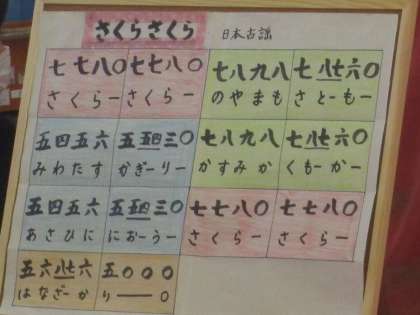 さくらさくら 日本古謡
七七八〇 七七八〇 七八九八 七八七六〇
さくらー さくらー のやまも さとーもー
五四五六 五四三〇 七八九八 七八七六〇
みわたす かぎーりー かすみか くもーかー
五四五六 五四三〇 七七八〇 七七八〇
あさひに におーうー さくらー さくらー
五六八七六 五〇〇〇
はなざーか りー〇